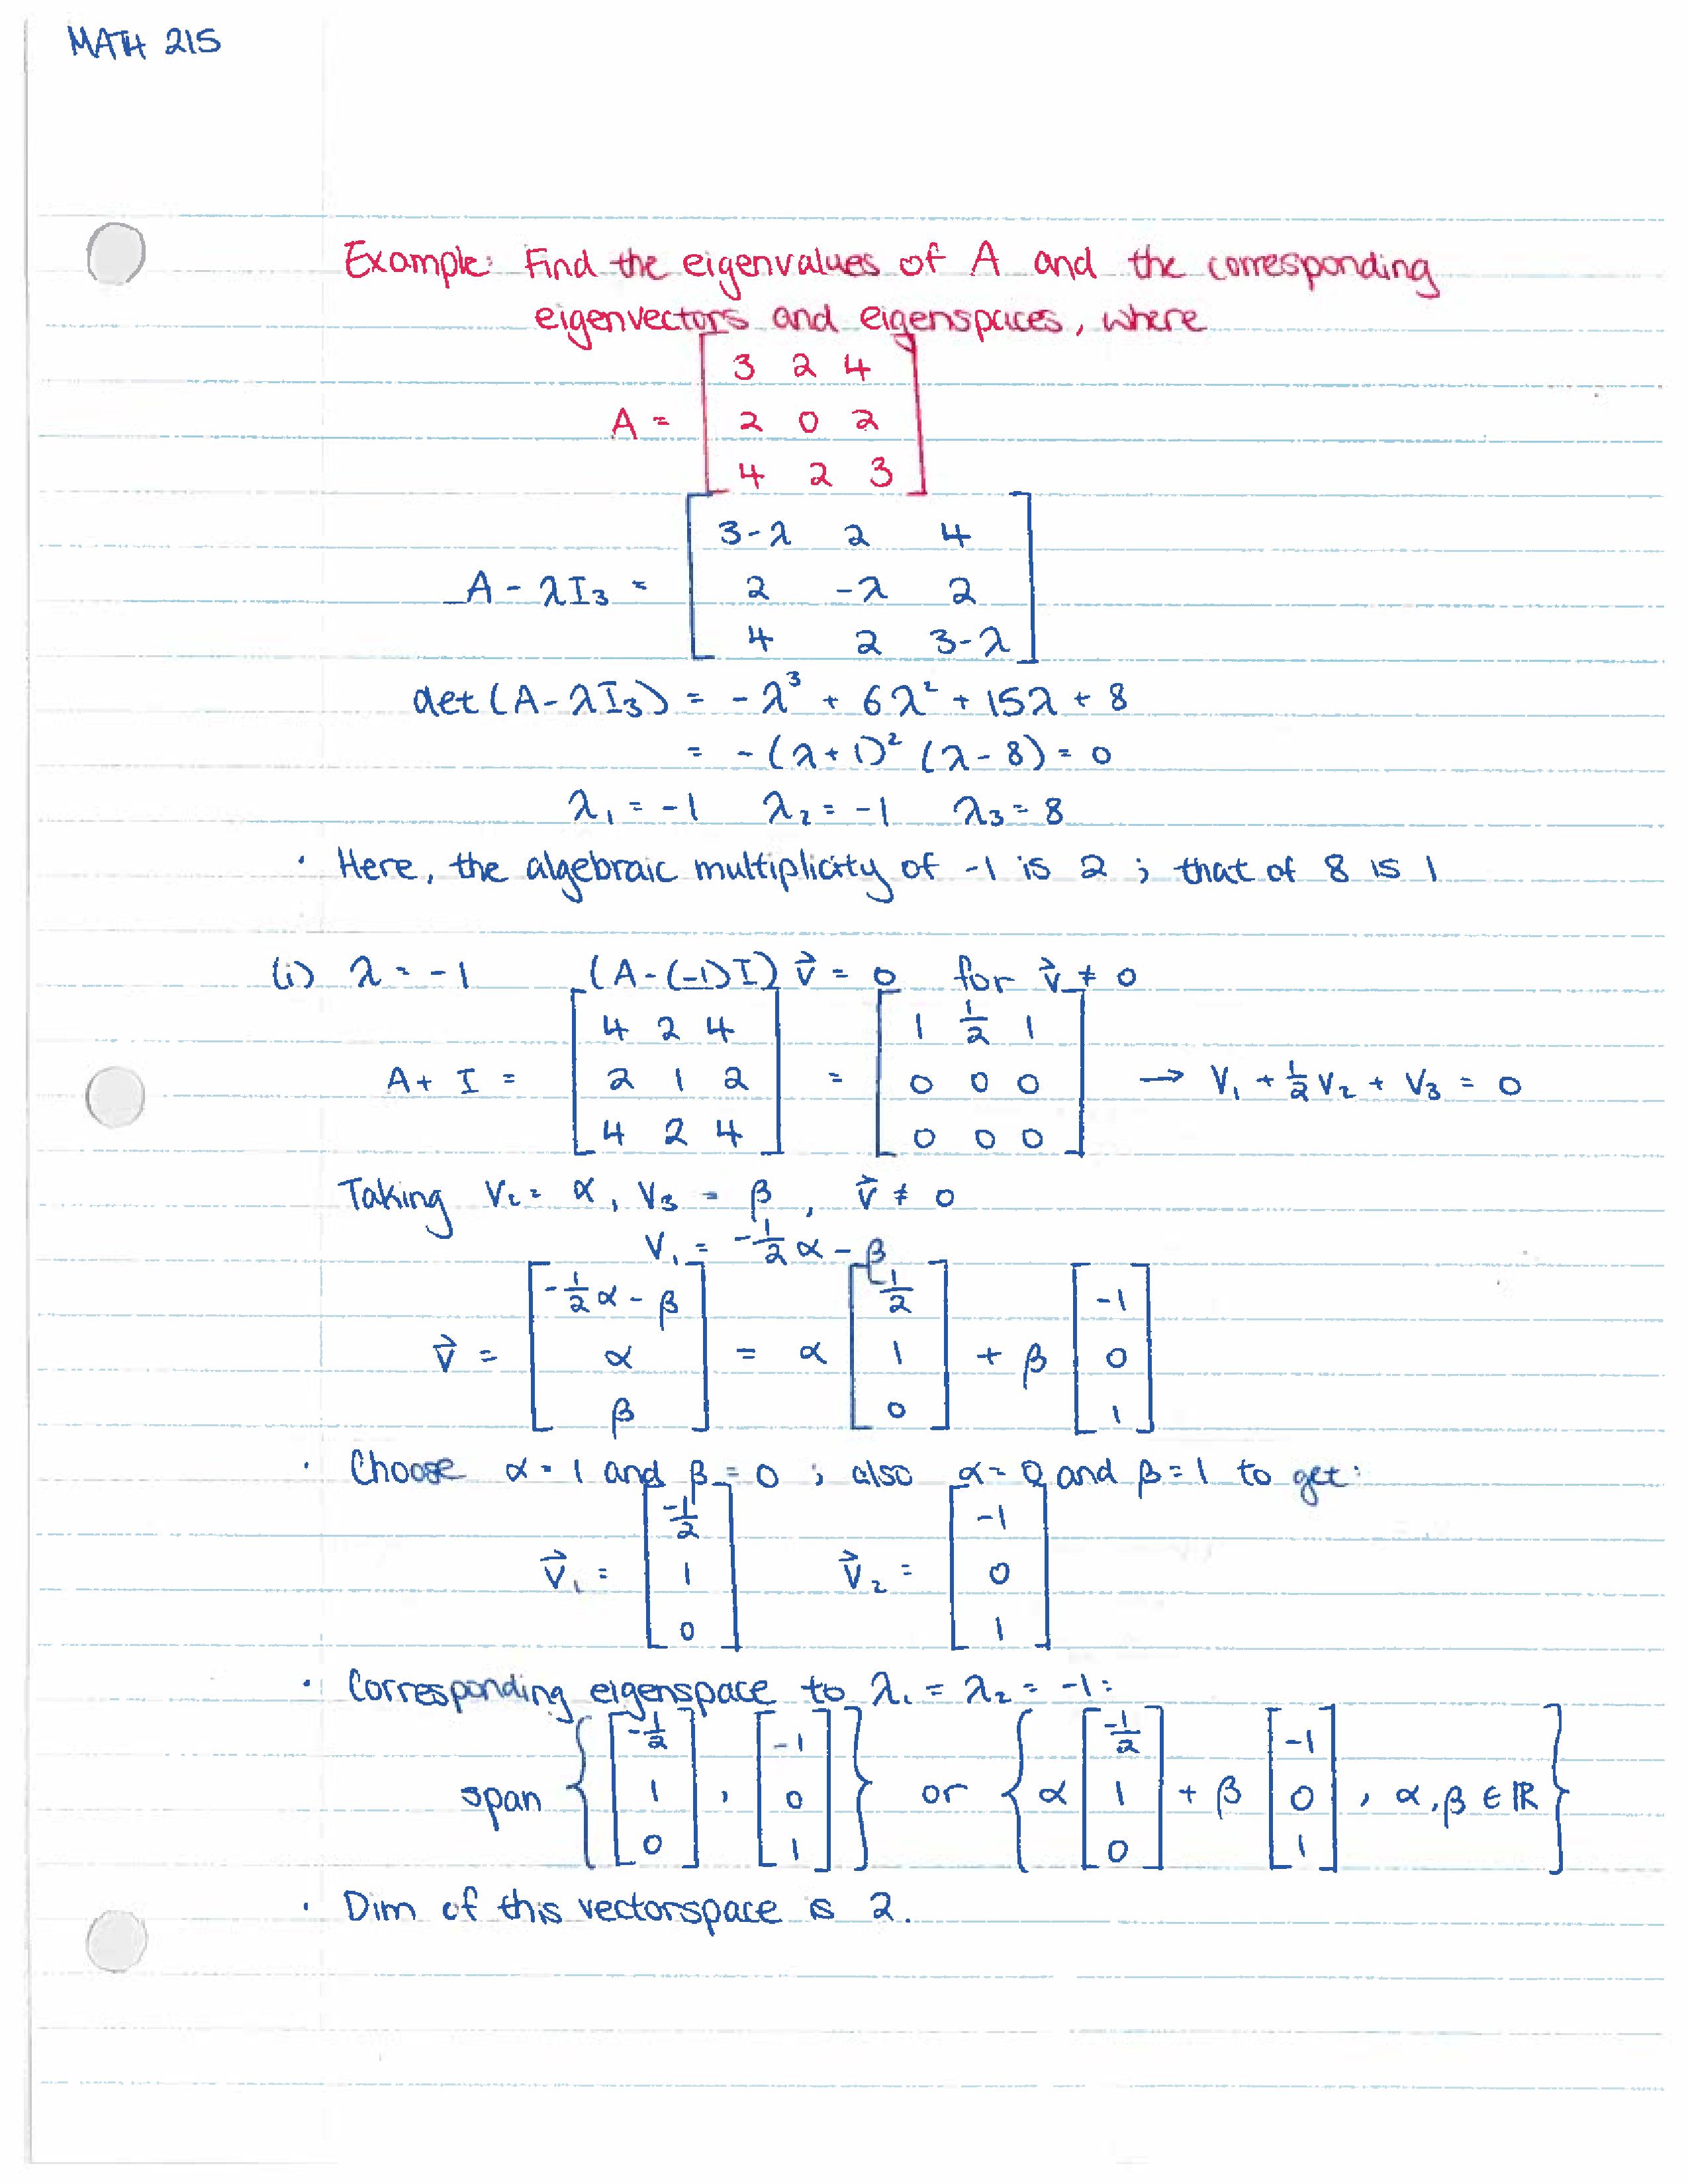 MATH 215
Example: Find the eigenvalues of A and the corresponding
eigenvectors and eigenspaces, where
A = [3 2 4; 2 0 2; 4 2 3]
A - λI₃ = [3-λ 2 4; 2 -λ 2; 4 2 3-λ]
det(A - λI₃) = -λ³ + 6λ² + 15λ + 8
= -(λ+1)² (λ-8) = 0
λ₁ = -1 λ₂ = -1 λ₃ = 8
· Here, the algebraic multiplicity of -1 is 2 ; that of 8 is 1
(i) λ = -1 (A-(-1)I) v⃗ = 0 for v⃗ ≠ 0
A + I = [4 2 4; 2 1 2; 4 2 4] = [1 1/2 1; 0 0 0; 0 0 0] → V₁ + 1/2 V₂ + V₃ = 0
Taking V₂ = α, V₃ = β, v⃗ ≠ 0
V₁ = -1/2 α - β
v⃗ = [-1/2 α - β; α; β] = α [-1/2; 1; 0] + β [-1; 0; 1]
· Choose α = 1 and β = 0 ; also α = 0 and β = 1 to get:
v⃗₁ = [-1/2; 1; 0] v⃗₂ = [-1; 0; 1]
· Corresponding eigenspace to λ₁ = λ₂ = -1:
span {[-1/2; 1; 0], [-1; 0; 1]} or {α [-1/2; 1; 0] + β [-1; 0; 1], α, β ∈ ℝ}
· Dim of this vectorspace is 2.